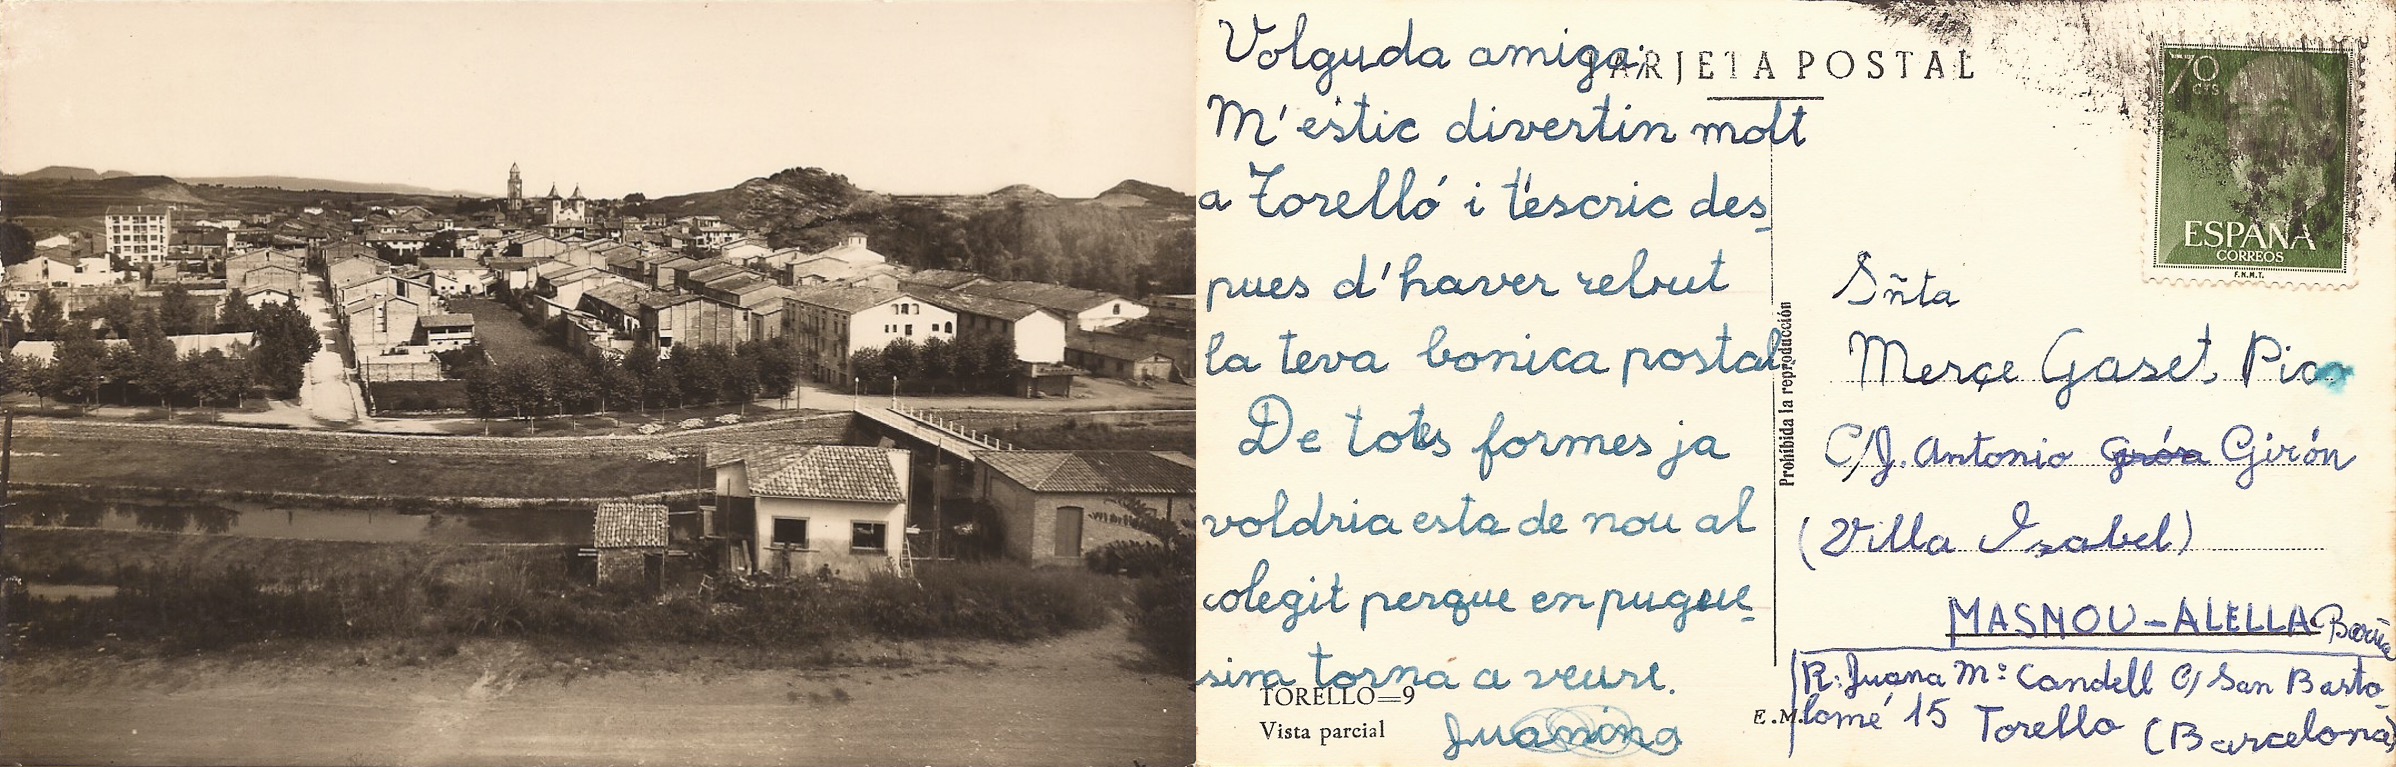 Volguda amiga:
TARJETA POSTAL
M'estic divertin molt
a Torelló i t'escric des-
pues d'haver rebut
la teva bonica postal
De totes formes ja
voldria esta de nou al
colegit perque en pugue-
sim torna a veure.
Juanina
TORELLO=9
Vista parcial
E.M.
Prohibida la reproducción
70
CTS
ESPAÑA
CORREOS
F.N.M.T.
Sñta
Merçe Gaset Pico
C/J. Antonio Girón
(Villa Izabel)
MASNOU-ALELLA
R: Juana Mª Candell C/ San Barto-
lomé 15 Torello (Barcelona)